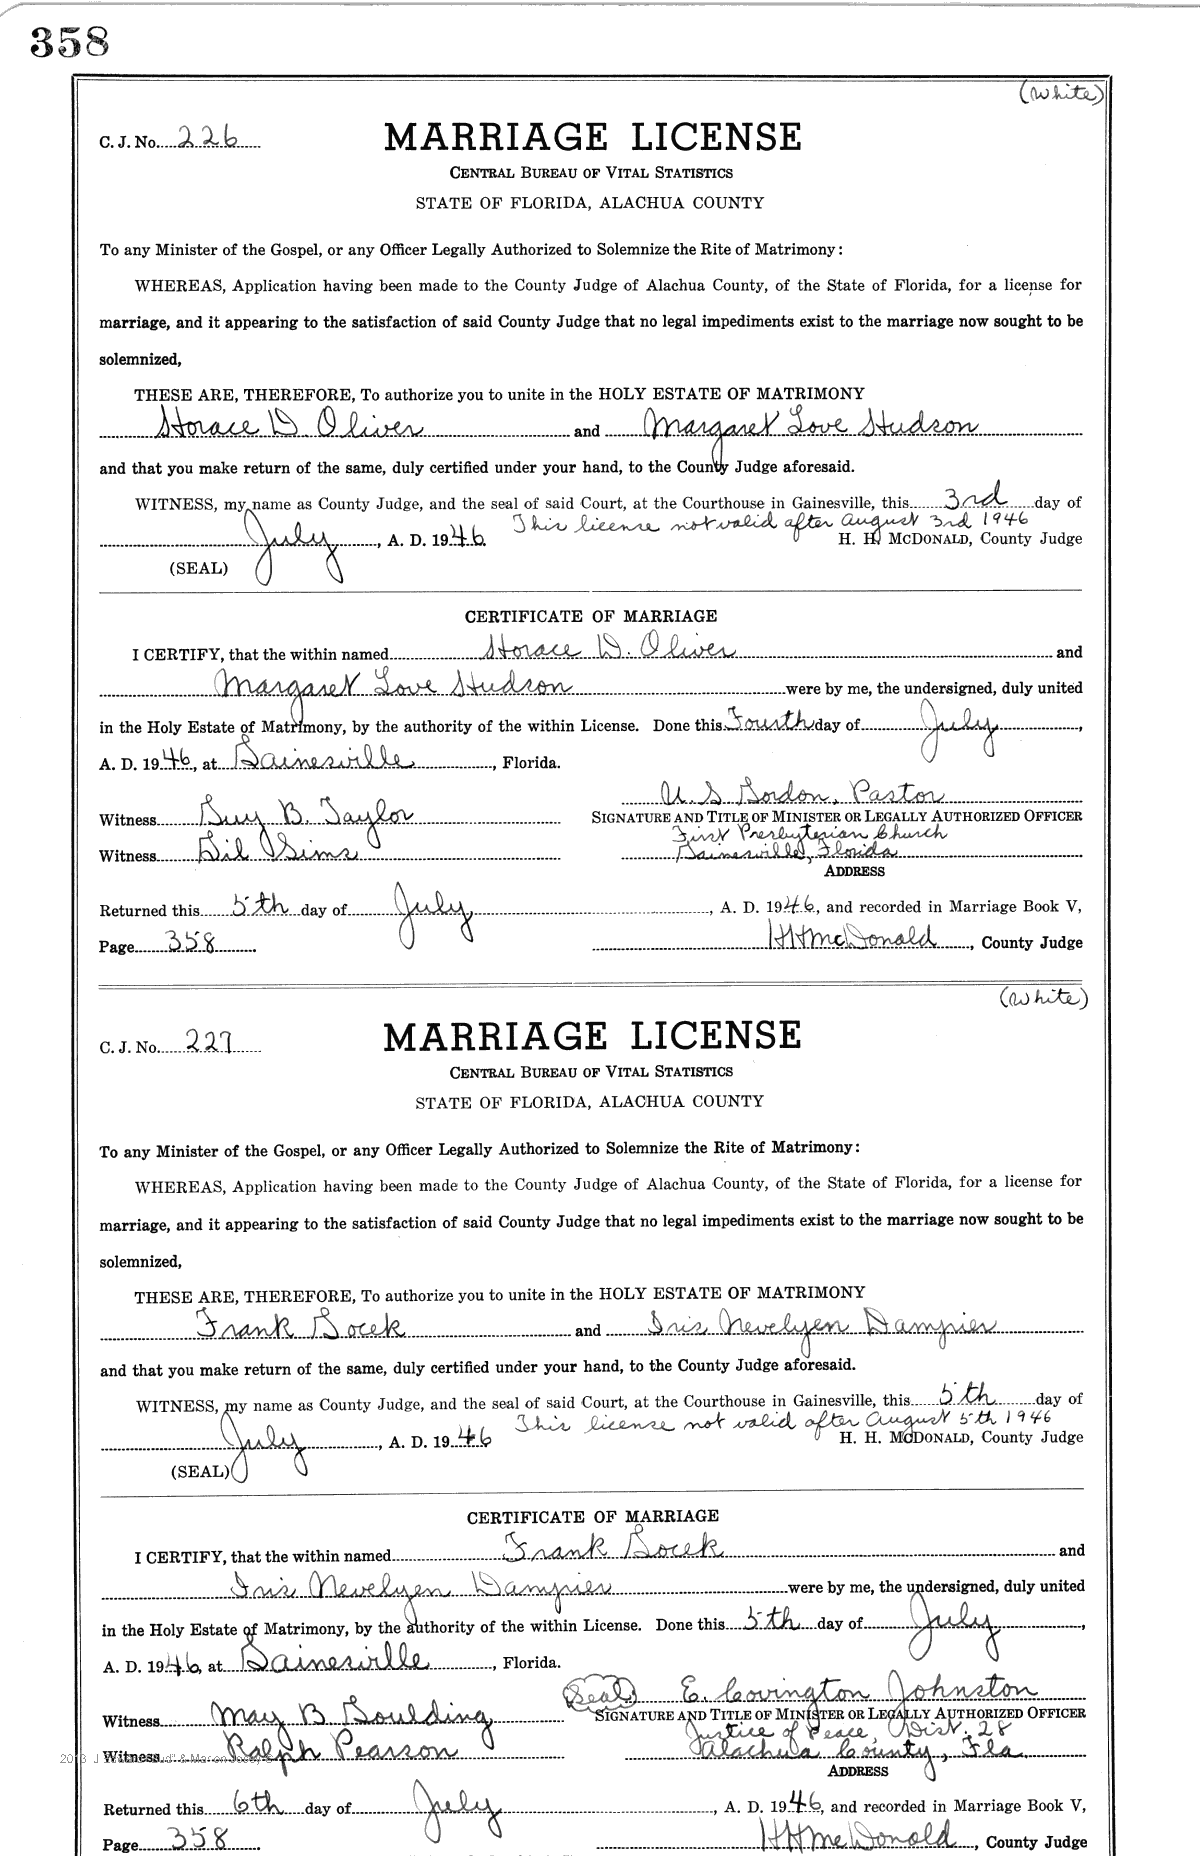 358
(White)
C. J. No. 226
MARRIAGE LICENSE
CENTRAL BUREAU OF VITAL STATISTICS
STATE OF FLORIDA, ALACHUA COUNTY
To any Minister of the Gospel, or any Officer Legally Authorized to Solemnize the Rite of Matrimony:
WHEREAS, Application having been made to the County Judge of Alachua County, of the State of Florida, for a license for
marriage, and it appearing to the satisfaction of said County Judge that no legal impediments exist to the marriage now sought to be
solemnized,
THESE ARE, THEREFORE, To authorize you to unite in the HOLY ESTATE OF MATRIMONY
Horace D. Oliver and Margaret Love Hudson
and that you make return of the same, duly certified under your hand, to the County Judge aforesaid.
WITNESS, my name as County Judge, and the seal of said Court, at the Courthouse in Gainesville, this 3rd day of
This license not valid after August 3rd 1946
July, A. D. 1946. H. H. McDONALD, County Judge
(SEAL)
CERTIFICATE OF MARRIAGE
I CERTIFY, that the within named Horace D. Oliver and
Margaret Love Hudson were by me, the undersigned, duly united
in the Holy Estate of Matrimony, by the authority of the within License. Done this Fourth day of July,
A. D. 1946, at Gainesville, Florida.
U. S. Gordon, Pastor
Witness Guy B. Taylor SIGNATURE AND TITLE OF MINISTER OR LEGALLY AUTHORIZED OFFICER
First Presbyterian Church
Witness Gil Sims Gainesville, Florida
ADDRESS
Returned this 5th day of July, A. D. 1946, and recorded in Marriage Book V,
Page 358 HHMcDonald, County Judge
(White)
C. J. No. 227
MARRIAGE LICENSE
CENTRAL BUREAU OF VITAL STATISTICS
STATE OF FLORIDA, ALACHUA COUNTY
To any Minister of the Gospel, or any Officer Legally Authorized to Solemnize the Rite of Matrimony:
WHEREAS, Application having been made to the County Judge of Alachua County, of the State of Florida, for a license for
marriage, and it appearing to the satisfaction of said County Judge that no legal impediments exist to the marriage now sought to be
solemnized,
THESE ARE, THEREFORE, To authorize you to unite in the HOLY ESTATE OF MATRIMONY
Frank Gocek and Iris Nevelyen Dampier
and that you make return of the same, duly certified under your hand, to the County Judge aforesaid.
WITNESS, my name as County Judge, and the seal of said Court, at the Courthouse in Gainesville, this 5th day of
This license not valid after August 5th 1946
July, A. D. 1946 H. H. McDONALD, County Judge
(SEAL)
CERTIFICATE OF MARRIAGE
I CERTIFY, that the within named Frank Gocek and
Iris Nevelyen Dampier were by me, the undersigned, duly united
in the Holy Estate of Matrimony, by the authority of the within License. Done this 5th day of July,
A. D. 1946, at Gainesville, Florida.
(Seal) E. Covington Johnston
Witness May B Goulding SIGNATURE AND TITLE OF MINISTER OR LEGALLY AUTHORIZED OFFICER
Justice of Peace, Dist. 28
Witness Ralph Pearson Alachua County, Fla
ADDRESS
Returned this 6th day of July, A. D. 1946, and recorded in Marriage Book V,
Page 358 HHMcDonald, County Judge